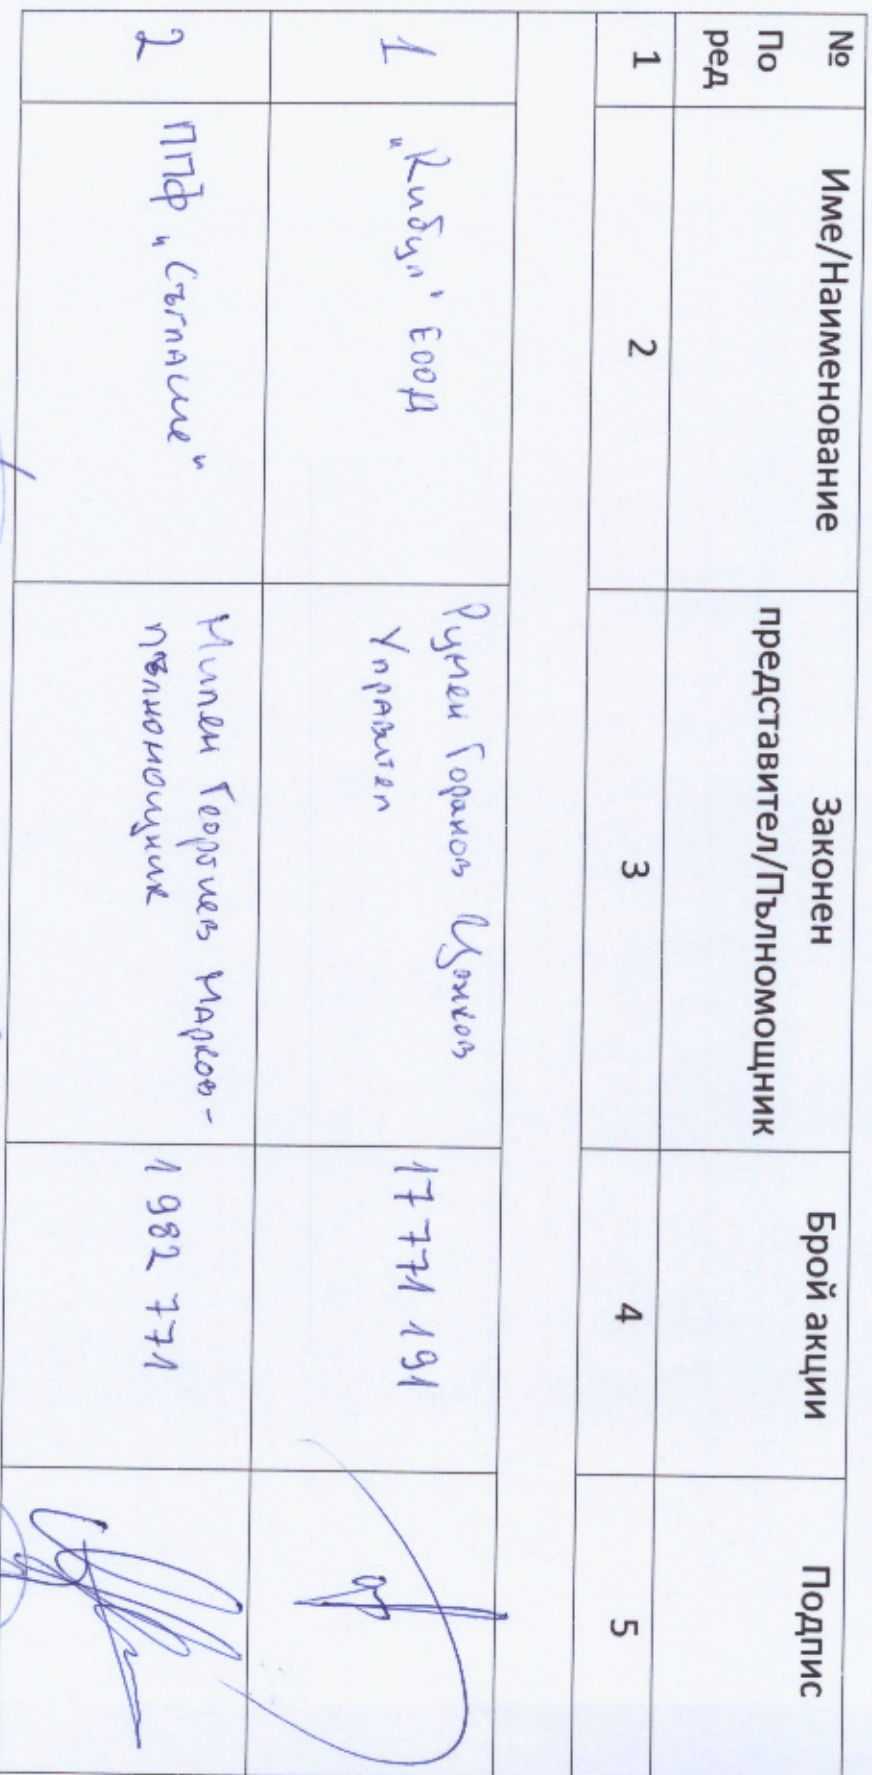 №
По
ред
Име/Наименование
Законен
представител/Пълномощник
Брой акции
Подпис
1
2
3
4
5
1
„Кибул" ЕООД
Румен Горанов Цонков
Управител
17 771 191
2
ППФ „Съгласие"
Милен Георгиев Марков -
пълномощник
1 982 771